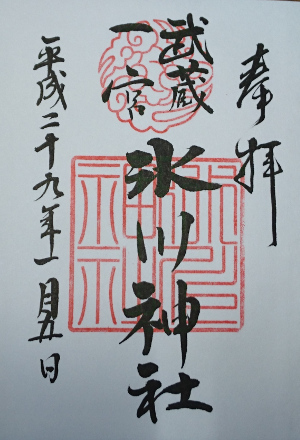 奉拝
武蔵
一宮
氷川神社
平成二十九年一月五日